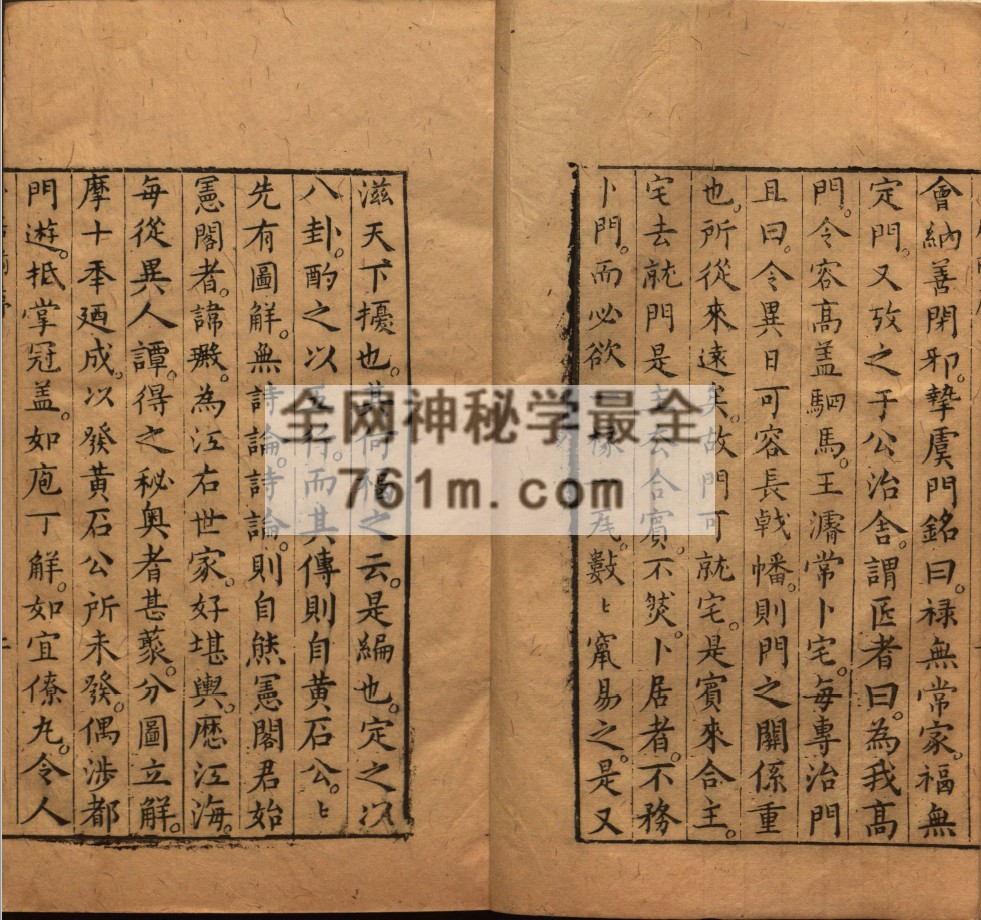 會納善閉邪。摯虞門銘曰。祿無常家。福無
定門。又攷之于公治舍。謂匠者曰。為我高
門。令容高盖駟馬。王濬常卜宅。每專治門
且曰。令異日可容長戟幡。則門之關係重
也。所從來遠矣。故門可就宅。是賓來合主。
宅去就門是主去合賓。不然。卜居者。不務
卜門。而必欲 數〻窜易之。是又
滋天下擾也。其何福之云。是編也。定之以
八卦。酌之以五行。而其傳則自黃石公。〻
先有圖解。無詩論。詩論。則自熊憲閣君始
憲閣者。諱㻫。為江右世家。好堪輿。歷江海。
每從異人譚。得之秘奥者甚夥。分圖立解。
摩十年廼成。以發黃石公所未發。偶渉都
門遊。抵掌冠盖。如庖丁解。如宜僚九。令人
全网神秘学最全
761m.com